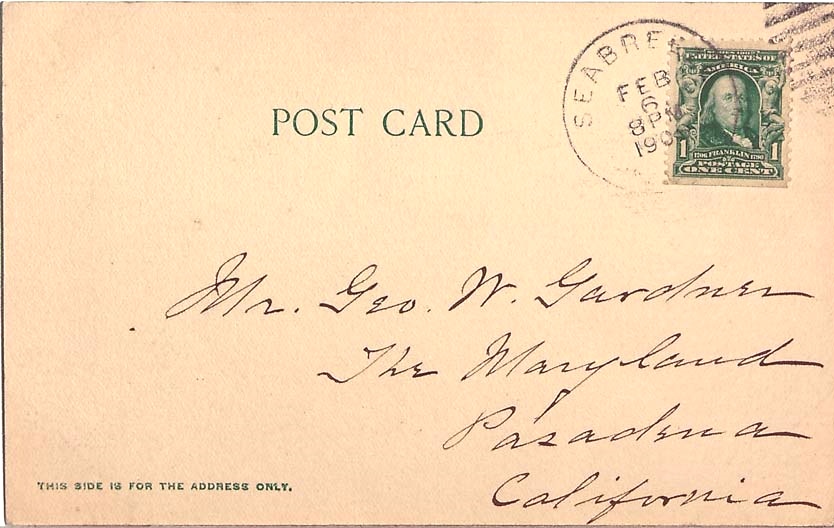 SEABREE
FEB
6
8 PM
190
UNITED STATES OF
AMERICA
1706 FRANKLIN 1790
1 1
POSTAGE
ONE CENT
POST CARD
Mr. Geo. W. Gardner
The Maryland
Pasadena
California
THIS SIDE IS FOR THE ADDRESS ONLY.